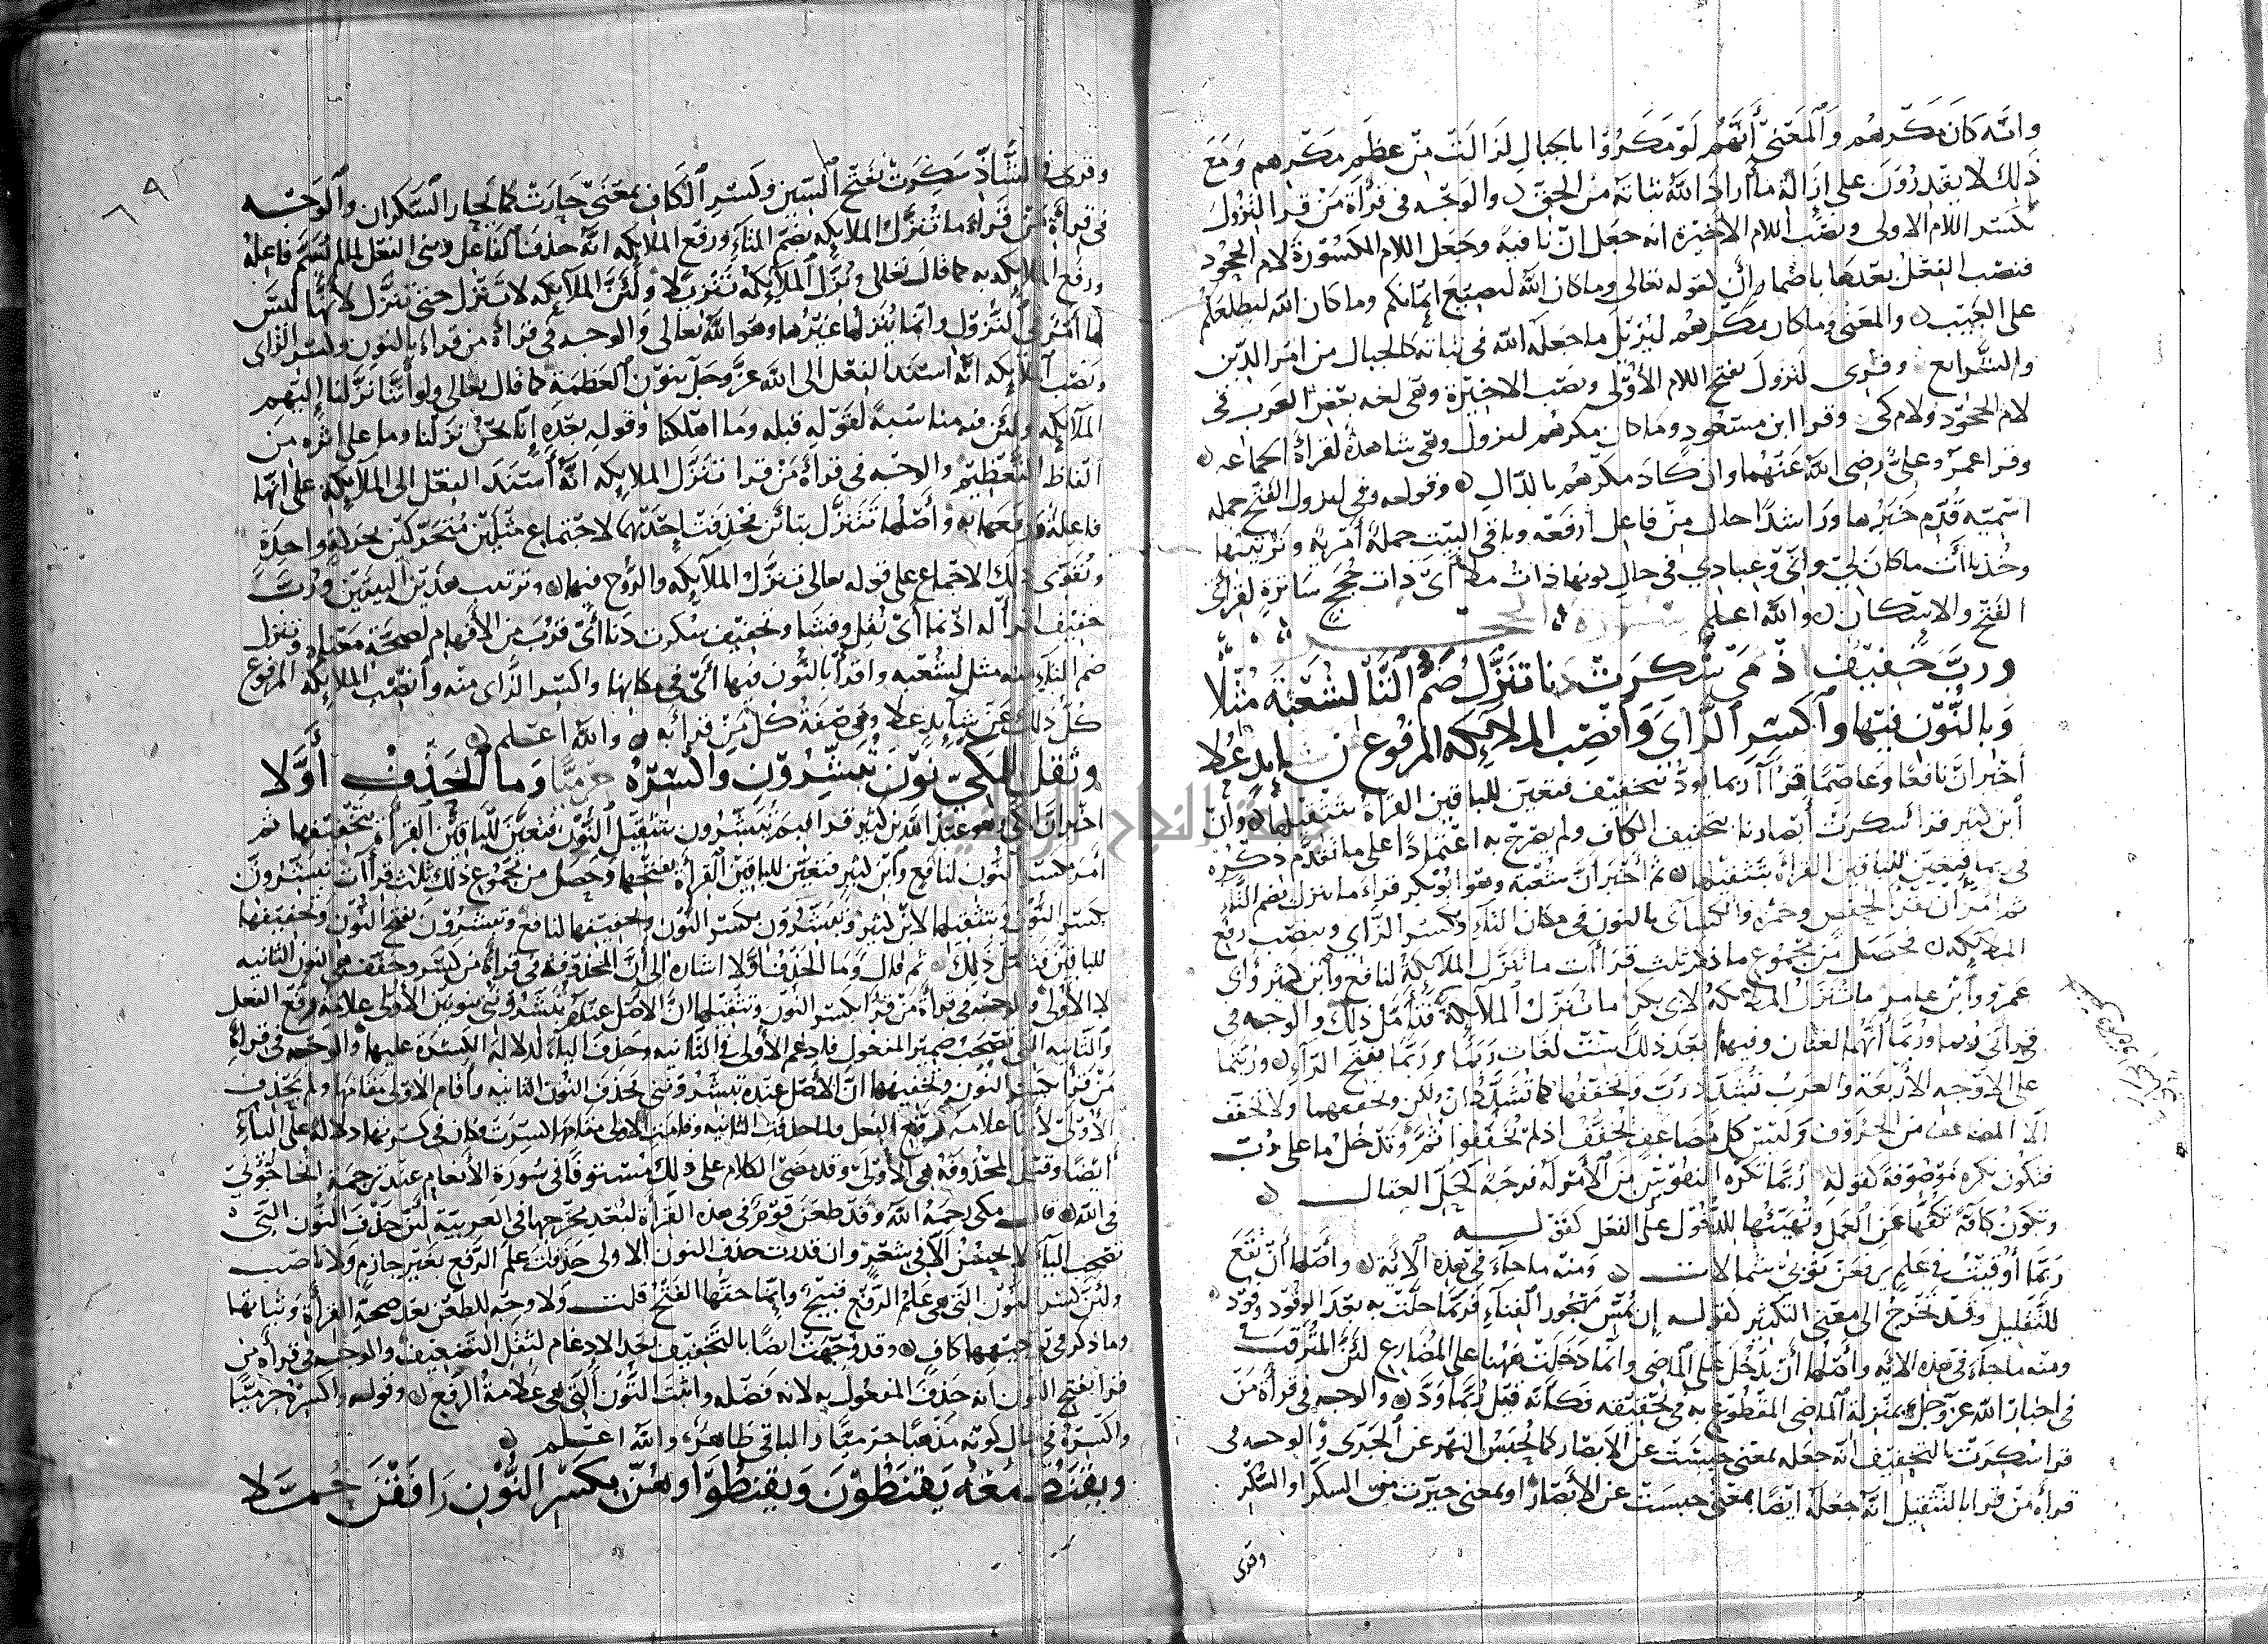 وانه كان مكرهم والمعنى أنهم لو مكروا بالجبال لزالت من عظم مكرهم ومع
ذلك لا يقدرون على ازالة ما أراد الله ثباته من الحق والوجه في قرأة من قرا لتزول
بكسر اللام الاولى ونصب اللام الاخيرة انه جعل ان نافية وجعل اللام المكسورة لام الجحود
فنصب الفعل بعدها باضمار أن كقوله تعالى وما كان الله ليضيع ايمانكم وما كان الله ليطلعكم
على الغيب والمعنى وما كان مكرهم ليزيل ما جعله الله في ثباته كالجبال من امر الدين
والشرايع وقرى لتزول بفتح اللام الأولى ونصب الاخيرة وهي لغه بعض العرب في
لام الجحود ولام كي وقرا ابن مسعود وما كان مكرهم لتزول وهي شاهدة لقراة الجماعه
وقرا عمر وعلي رضي الله عنهما وان كاد مكرهم بالدال وقوله وفي لتزول الفتح جمله
اسمية قدم خبرها وراشدا حال من فاعل ارفعه وباقي البيت جملة أمرية وترتيبها
وخذ يا أنت ما كان لي واني وعبادي في حال كونها ذات أي ذات حجج ساترة لقرأتي
الفتح والاسكان والله اعلم سورة الحجر
ورب خفيف اذ نمى سكرت دنا تنزل ضم التا لشعبة مثلا
وبالنون فيها واكسر الزاي وانصب الملائكة المرفوع عن شايد علا
أخبر ان نافعا وعاصما قرآ ربما يود بتخفيف فتعين للباقين القراة بتثقيلها وان
ابن كثير قرا سكرت أبصارنا بتخفيف الكاف ولم يصرح به اعتمادا على ما تقدم ذكره
في ربما فتعين للباقين القراة بتثقيلها ثم أخبر أن شعبة وهو ابو بكر قراء ما تنزل بضم التاء
ثم أمر أن يقرا لحفص وحمزة والكسائ بالنون في مكان التاء وكسر الزاي وبنصب رفع
الملائكه فحصل من مجموع ما ذكر ثلث قراأت ما تنزل الملآئكة لنافع وابن كثير وأبي
عمرو وابن عامر ما تنزل الملائكة لابي بكر ما ننزل الملآئكة فتأمل ذلك والوجه في
قرأتي ربما وربما أنهما لغتان وفيها بعد ذلك ست لغات ربما وربما بفتح الراء وربتما
على الاوجه الأربعة والعرب تشدد رب وتخففها كما تشدد ان ولكن وتخففهما ولا تخفف
الا المضاعف من الحروف وليس كل مضاعف يخفف اذ لم تخففوا ثم وتدخل ما على رب
فتكون نكره موصوفة كقوله ربما تكره النفوس من الأمر له فرجة كحل العقال
وتكون كافة تكفها عن العمل وتهيئها للدخول على الفعل كقوله
ربما أوفيت في علم ترفعن ثوبي شمالات ومنه ما جاء في هذه الآية وأصلها أن تقع
للتقليل وقد تخرج الى معنى التكثير كقوله إن يمس مهجور الفناء فربما حلت به بعد الوفود وفود
ومنه ما جاء في هذه الاية وأصلها أن تدخل على الماضي وانما دخلت ههنا على المضارع لئن المترقب
في اخبار الله عز وجل بمنزلة الماضي المقطوع به في تحقيقه فكأنه قيل ربما ود والوجه في قرأة من
قرا سكرت بالتخفيف أنه جعله بمعنى حبست عن الابصار كما يحبس النهر عن الجرى والوجه في
قرأة من قرا بالتثقيل انه جعله ايضا بمعنى حبست عن الابصار او بمعنى حيرت من السكر او السكر
وقرى
وقرى في الشاذ سكرت بفتح السين وكسر الكاف بمعنى حارت كما يحار السكران والوجه
في قرأة من قراء ما تنزل الملايكه بضم التاء ورفع الملايكه أنه حذف الفاعل وبنى الفعل لما لم يسم فاعله
ورفع الملايكه به كما قال تعالى ونزل الملآئكة تنزيلا ولئن الملآئكه لا تنزل حتى تنزل لانها ليس
لها أمر في النزول وانما ينزلها غيرها وهو الله تعالى والوجه في قرأة من قراء بالنون وكسر الزاي
ونصب الملآئكه أنه اسند الفعل الى الله عز وجل بنون العظمة كما قال تعالى ولو أننا نزلنا اليهم
الملآئكه ولئن فيه مناسبة لقوله قبله وما اهلكنا وقوله بعده إنا نحن نزلنا وما على اثره من
الفاظ التعظيم والوجه في قرأة من قرا تنزل الملايكه أنه أسند الفعل الى الملآئكة على انها
فاعله ورفعها به وأصلها تتنزل بتائن فحذفت إحديهما لاجتماع مثلين متحركين بحركة واحدة
ويقوى ذلك الاجماع على قوله تعالى تنزل الملآئكه والروح فيها وترتيب هذين البيتين ورب
خفيف اقرأ له اذ نما أي نقل وفشا وتخفيف سكرت دنا أي قرب من الأفهام لصحة معناه وتنزل
ضم التاء منه مثل لشعبه واقرا بالنون فيها أي في مكانها واكسر الزاي منه وانصب الملايكه المرفوع
كل ذلك عن شايد علا وهي صفة كل من قرأ به والله اعلم
وثقل للمكي نون تبشرون واكسره حرميا وما الحذف أولا
اخبر ان المكي وهو عبد الله بن كثير قرا فبم تبشرون بتثقيل النون فتعين للباقين القرأة بتخفيفها ثم
أمر بكسر النون لنافع وابن كثير فتعين للباقين القرأة بفتحها وحصل من مجموع ذلك ثلث قراأت تبشرون
بكسر النون وتثقيلها لابن كثير وتبشرون بكسر النون وتخفيفها لنافع وتبشرون بفتح النون وتخفيفها
للباقين فتأمل ذلك ثم قال وما الحذف أولا اشارة الى أن المحذوفة في قرأة من كسر وخفف هي النون الثانيه
لا الأولى والوجه في قرأة من قرا بكسر النون وتثقيلها ان الاصل عنده تبشرونني بنونين الأولى علامة رفع الفعل
والثانيه التي تصحب ضمير المفعول فادغم الأولى في الثانيه وحذف الياء لدلالة الكسرة عليها والوجه في قرأة
من قرأ بكسر النون وتخفيفها ان الأصل عنده تبشرونني فحذف النون الثانيه وأقام الاولى مقامها ولم يحذف
الأولى لأنها علامة رفع الفعل ولما حذفت الثانيه وقامت الاولى مقامها كسرت وكان في كسرتها دلالة على الياء
أيضا وقيل المحذوفة هي الأولى وقد مضى الكلام على ذلك مستوفا في سورة الأنعام عند ترجمة اتحاجوني
في الله قال مكي رحمه الله وقد طعن قوم في هذه القرأة لبعد مخرجها في العربية لئن حذف النون التي
تصحب الياء لا يحسن الا في شعر وان قدرت حذف النون الاولى حذفت علم الرفع بغير جازم ولا ناصب
ولئن كسر النون التي هي علم الرفع قبيح وانما حقها الفتح قلت ولا وجه للطعن بعد صحة القرأة وثباتها
وما ذكر في توجيهها كاف وقد وجهت ايضا بالتخفيف بعد الادغام لثقل التضعيف والوجه في قرأة من
قرا بفتح النون انه حذف المفعول به لانه فضله واثبت النون التي هي علامة الرفع وقوله واكسره حرميا
واكسره في حال كونه مذهبا حرميا والباقي ظاهر والله اعلم
ويقنط معه يقنطون ويقنطوا وهن بكسر النون رافقن حملا